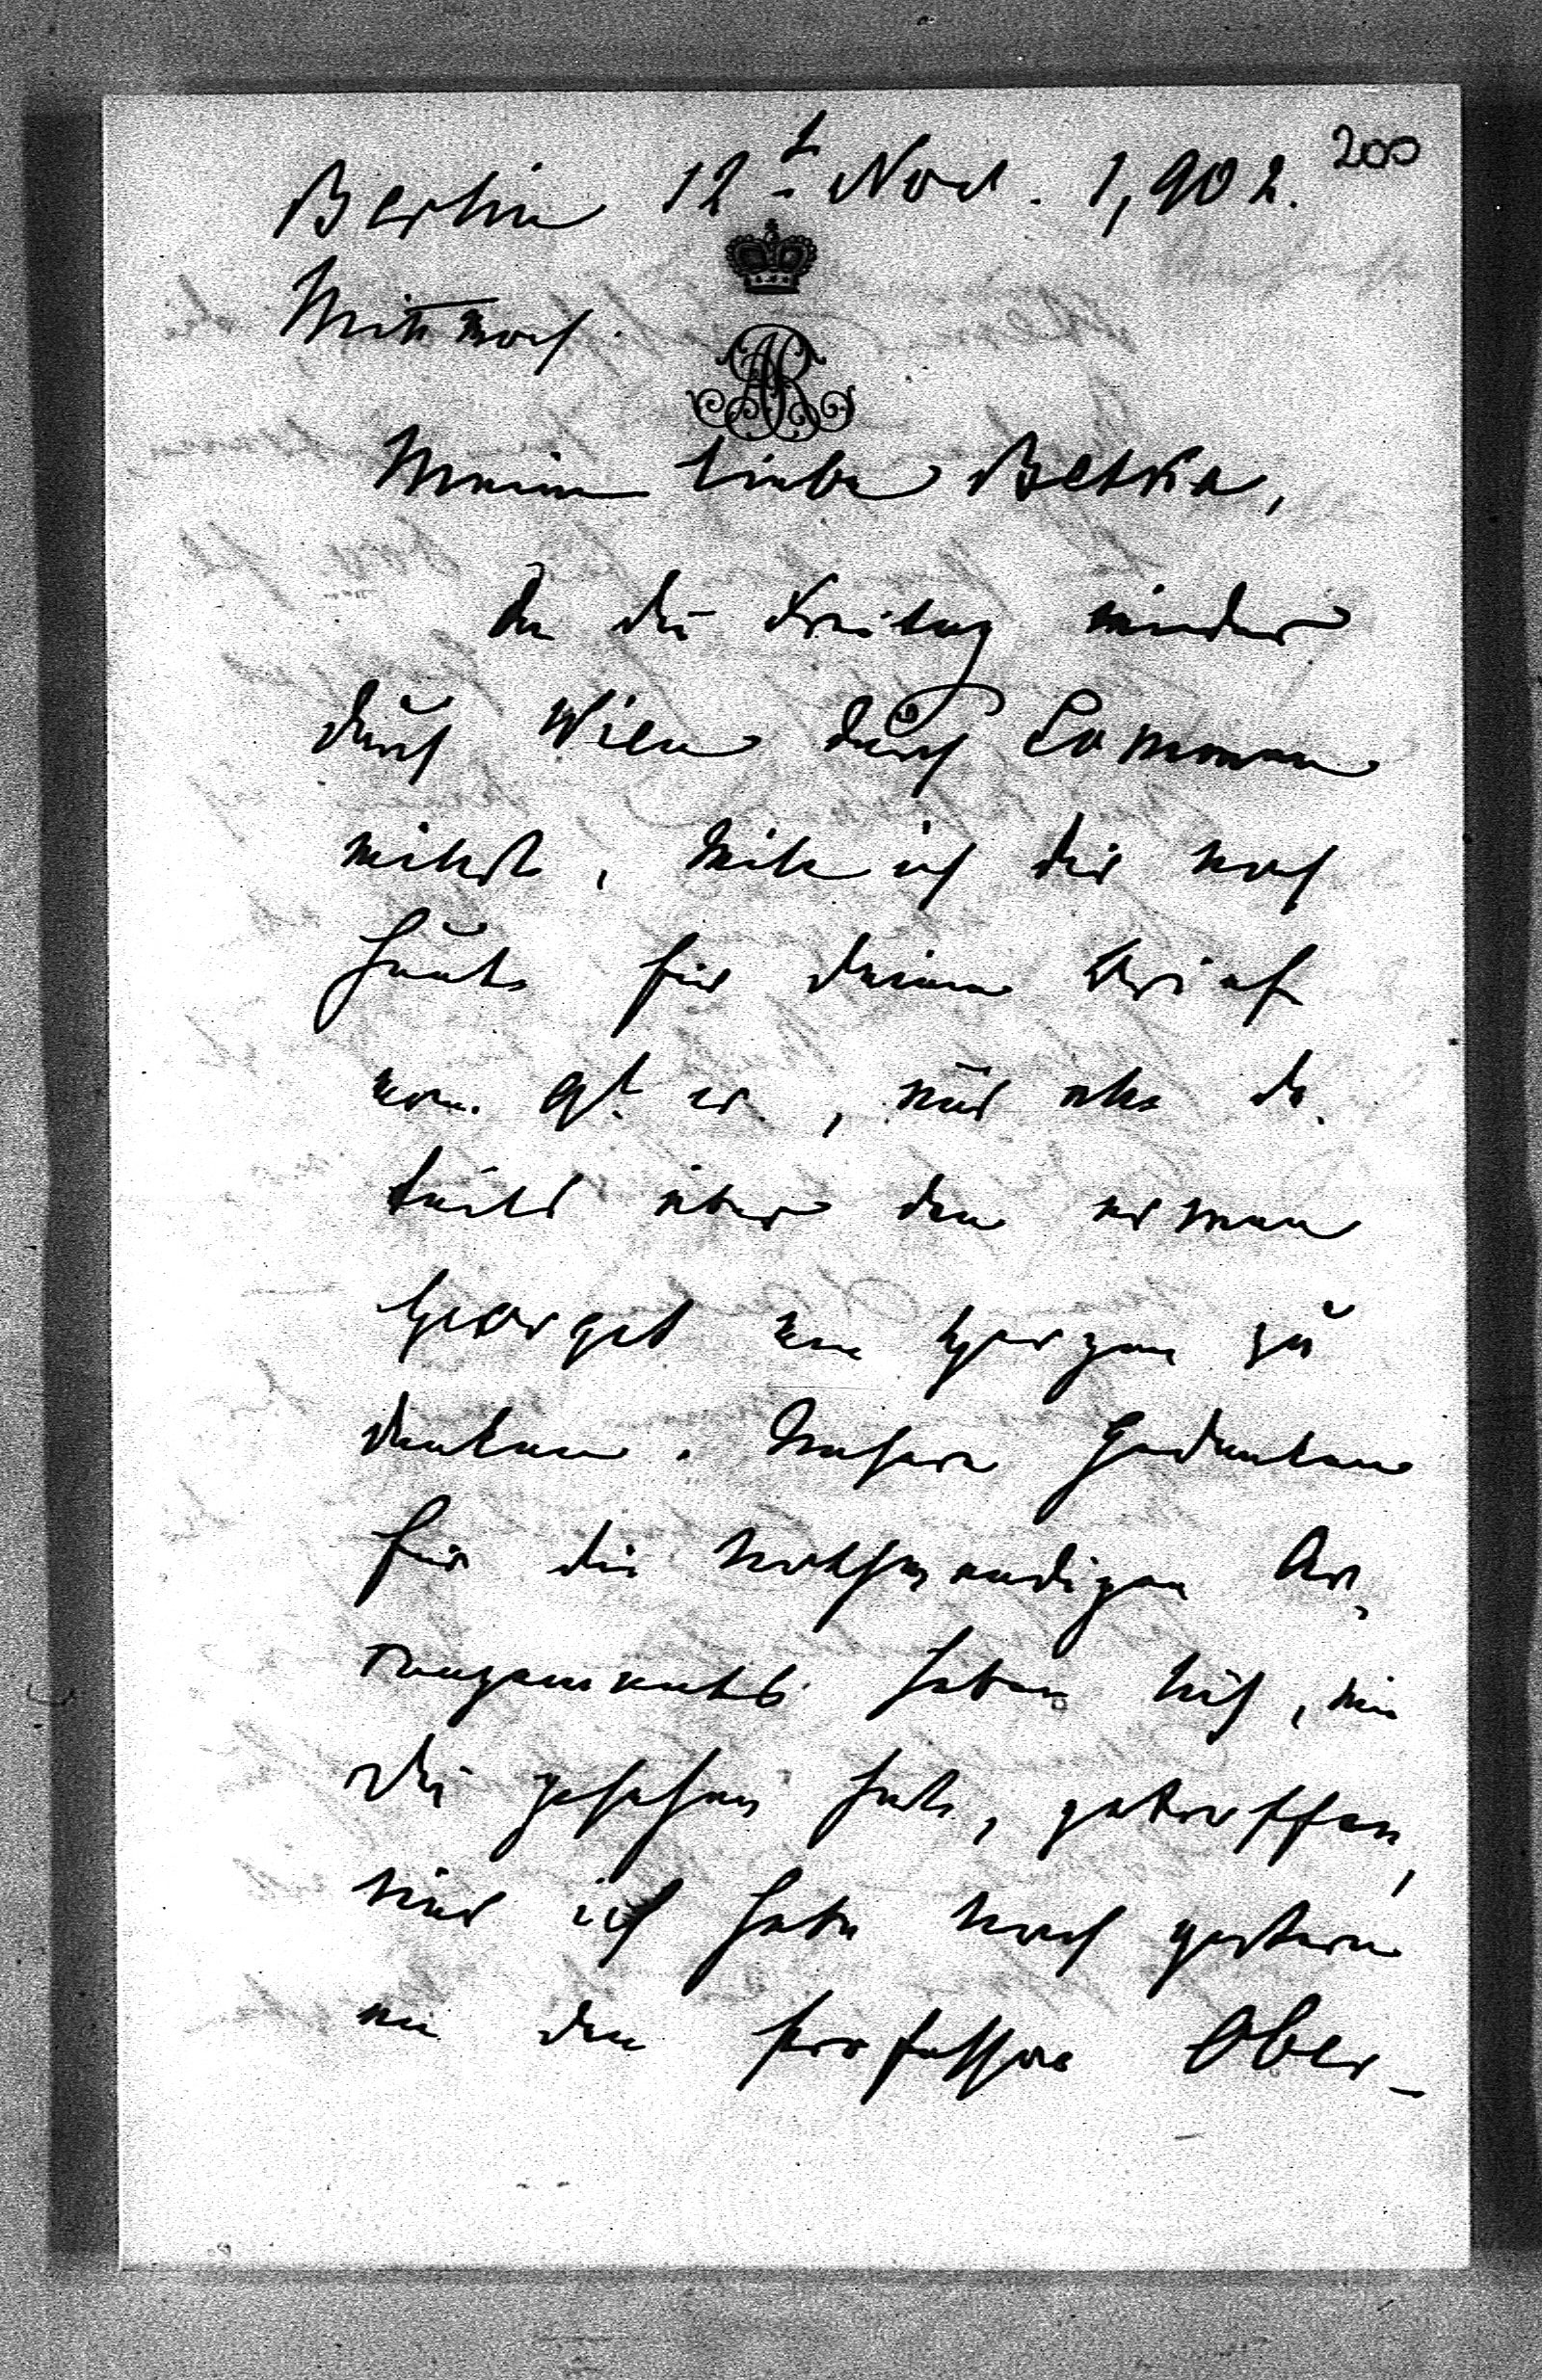 200
Berlin 12t Nov. 1,902.
Mittwoch.
AR
Meine liebe Betka,
Da du Freitag wieder
durch Wien durch kommen
willst, will ich dir noch
heute für deinen Brief
vom 9t er, und alle De-
tails über den armen
Georges von Herzen
danken. Unsere Gedanken
für die nothwendigen Ar-
rangements haben sich, wie
du gesehen hast, getroffen,
und ich habe noch gestern
an den Professor Ober-